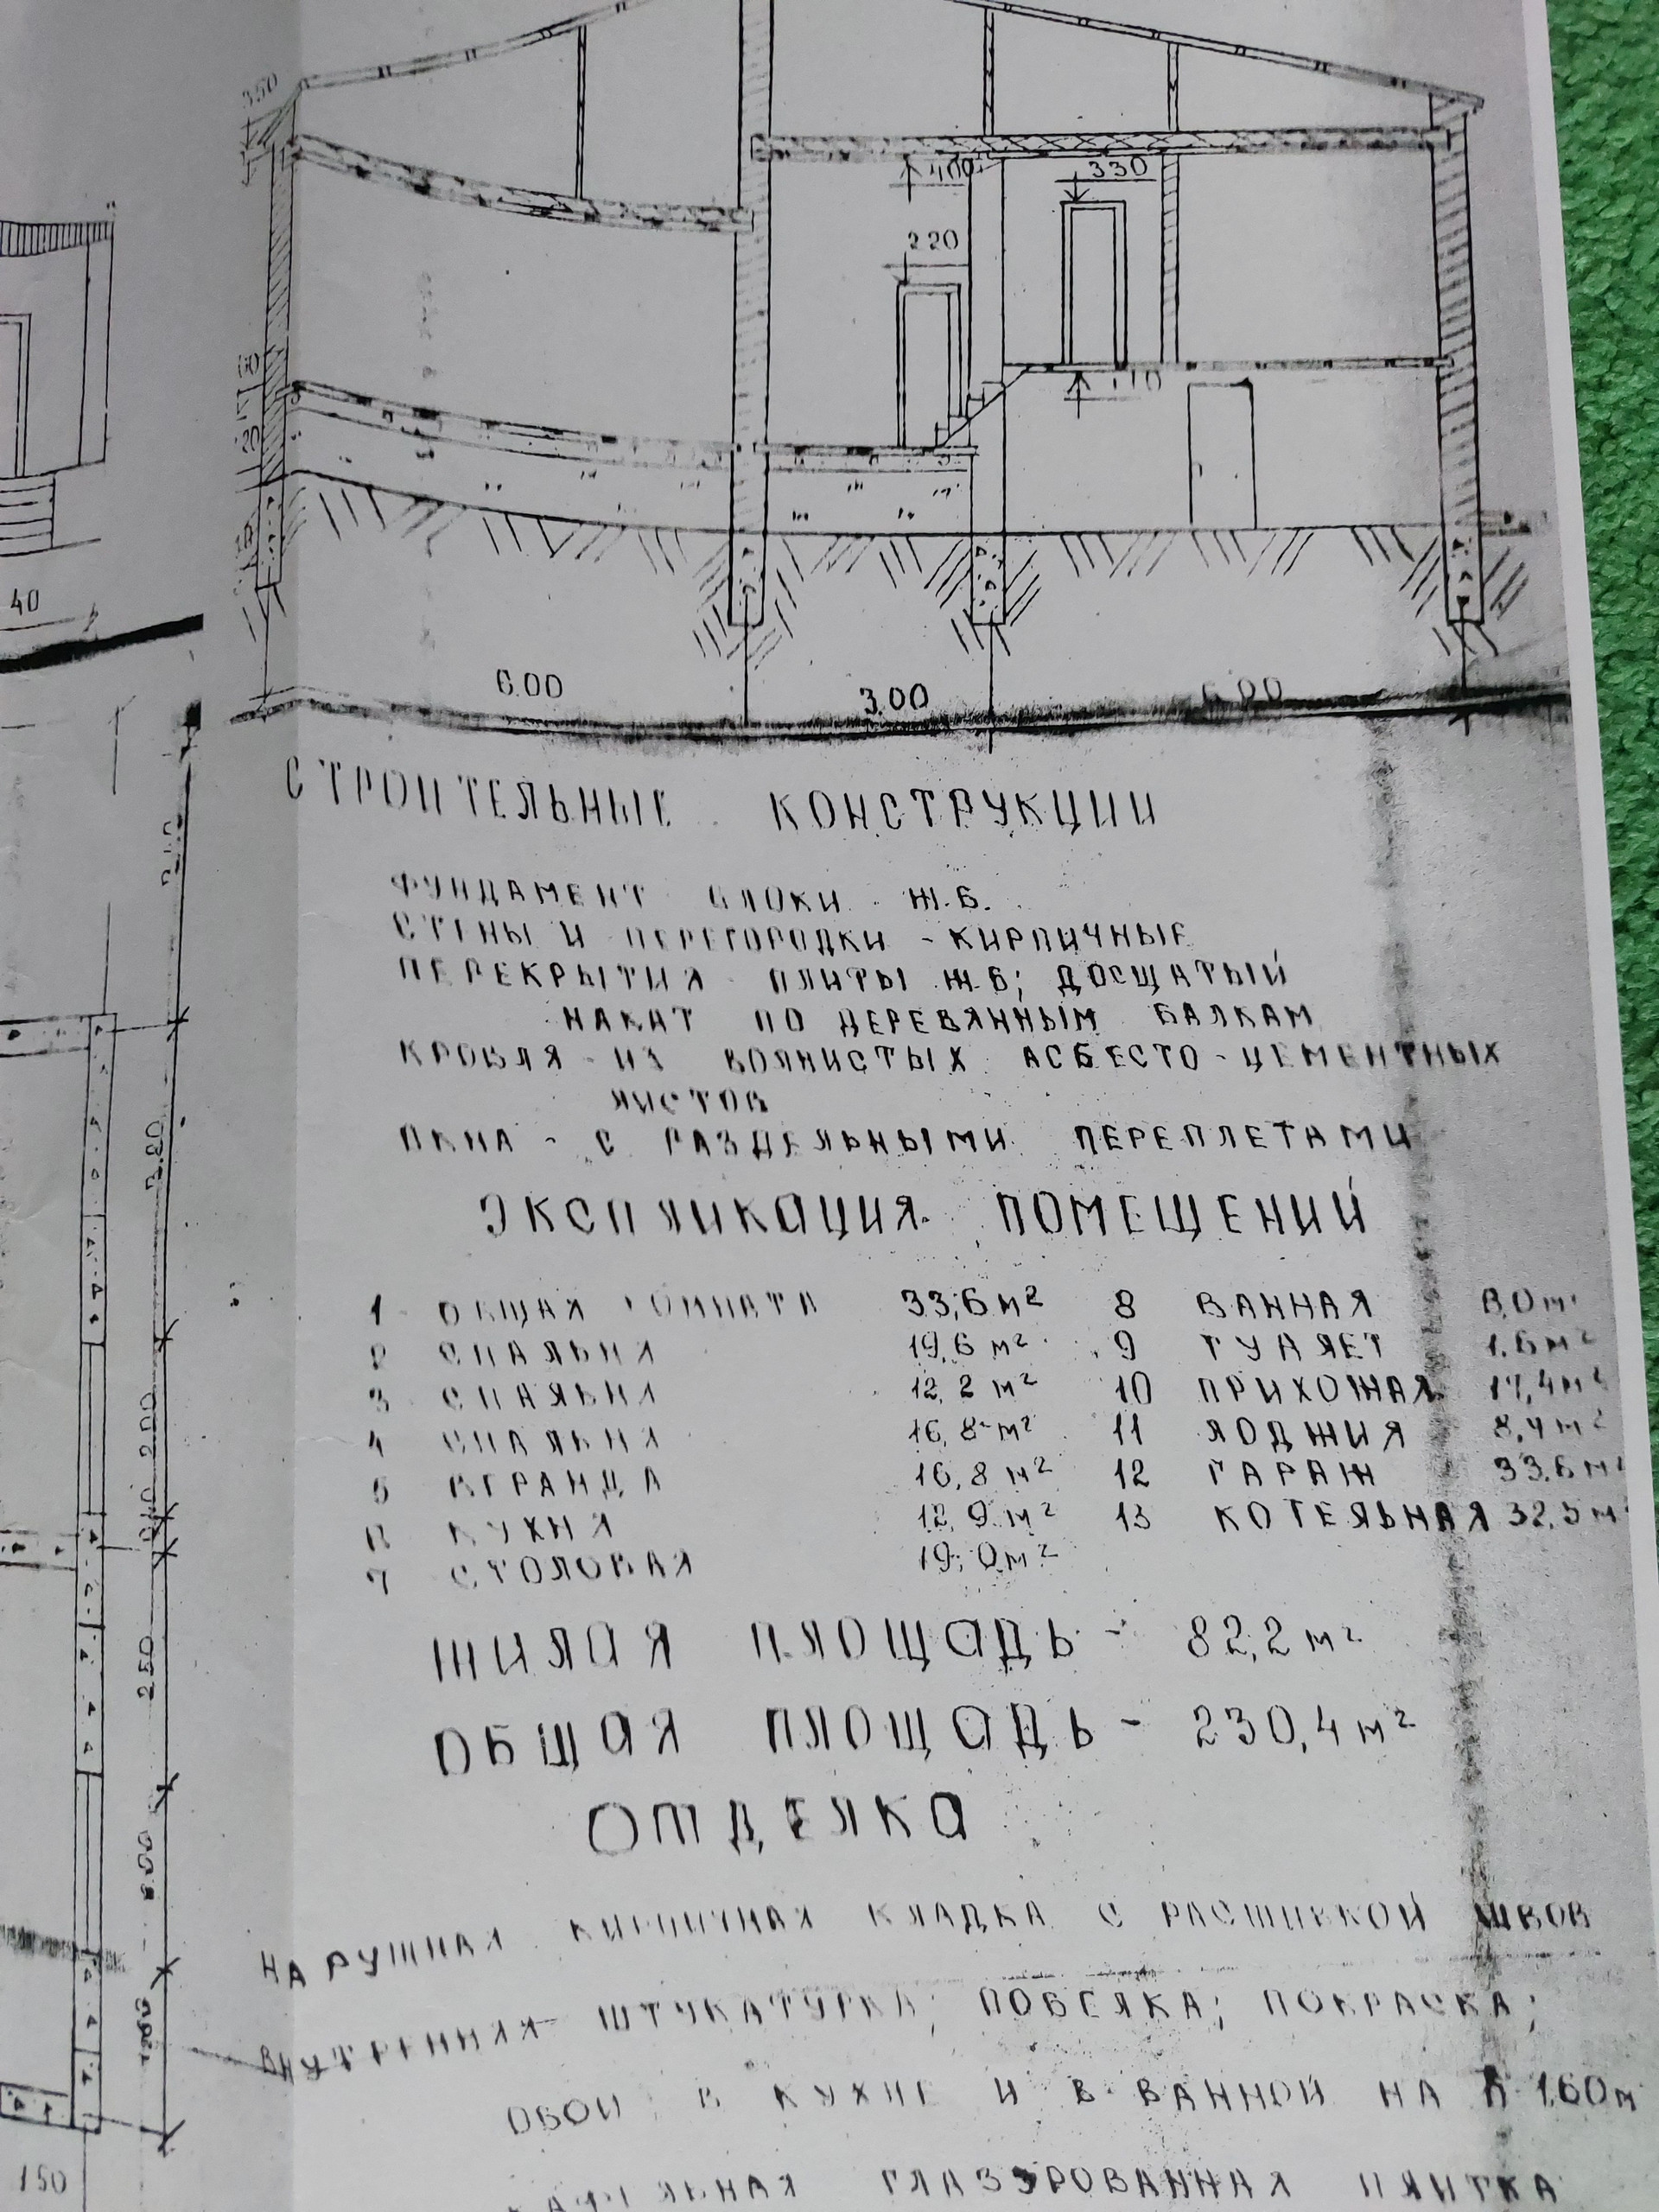 350
400
330
220
110
60
20
40
6.00
3.00
6.00
СТРОИТЕЛЬНЫЕ КОНСТРУКЦИИ
ФУНДАМЕНТ БЛОКИ Ж.Б.
СТЕНЫ И ПЕРЕГОРОДКИ - КИРПИЧНЫЕ
ПЕРЕКРЫТИЯ ПЛИТЫ Ж.Б; ДОСЩАТЫЙ
НАКАТ ПО ДЕРЕВЯННЫМ БАЛКАМ
КРОВЛЯ - ИЗ ВОЛНИСТЫХ АСБЕСТО-ЦЕМЕНТНЫХ
ЛИСТОВ
ОКНА - С РАЗДЕЛЬНЫМИ ПЕРЕПЛЕТАМИ
ЭКСПЛИКАЦИЯ ПОМЕЩЕНИЙ
1 ОБЩАЯ КОМНАТА 33,6 м² 8 ВАННАЯ 8,0 м²
2 СПАЛЬНЯ 19,6 м² 9 ТУАЛЕТ 1.6 м²
3 СПАЛЬНЯ 12,2 м² 10 ПРИХОЖАЯ 17,4 м²
4 СПАЛЬНЯ 16,8 м² 11 ЛОДЖИЯ 8,4 м²
5 ВЕРАНДА 16,8 м² 12 ГАРАЖ 33.6 м²
6 КУХНЯ 12,9 м² 13 КОТЕЛЬНАЯ 32,5 м²
7 СТОЛОВАЯ 19,0 м²
ЖИЛАЯ ПЛОЩАДЬ - 82,2 м²
ОБЩАЯ ПЛОЩАДЬ - 230,4 м²
ОТДЕЛКА
НАРУЖНАЯ КИРПИЧНАЯ КЛАДКА С РАСШИВКОЙ ШВОВ
ВНУТРЕННЯЯ - ШТУКАТУРКА; ПОБЕЛКА; ПОКРАСКА;
ОБОИ; В КУХНЕ И В ВАННОЙ НА h 1.60 м
ГЛАЗУРОВАННАЯ ПЛИТКА
2.20
200
250
150